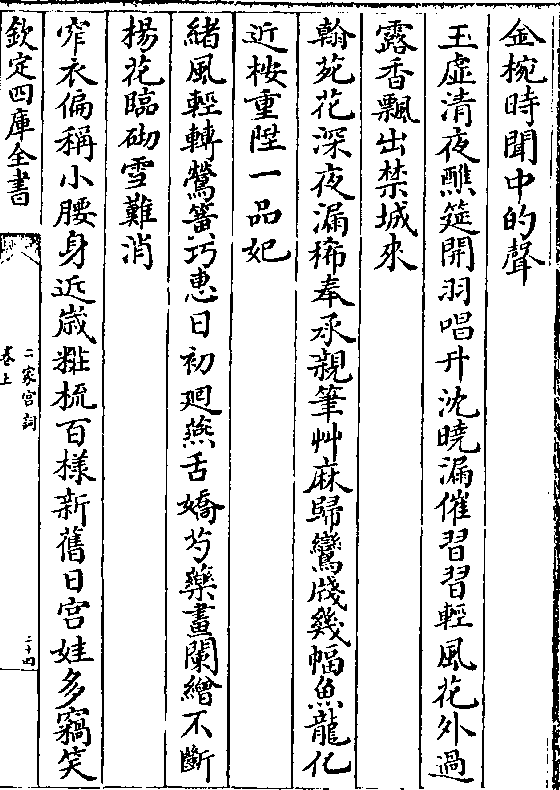 金椀時聞中的聲
玉虛清夜醮筵開羽唱升沈曉漏催習習輕風花外過
露香飄出禁城來
翰苑花深夜漏稀奉承親筆艸麻歸鸞牋幾幅魚龍化
近桉重陞一品妃
緒風輕轉鶯簧巧惠日初廻燕舌嬌芍藥畫闌繒不斷
楊花臨砌雪難消
窄衣偏稱小腰身近歲粧梳百樣新舊日宮娃多竊笑
欽定四庫全書
二家宮詞
卷上
二十四